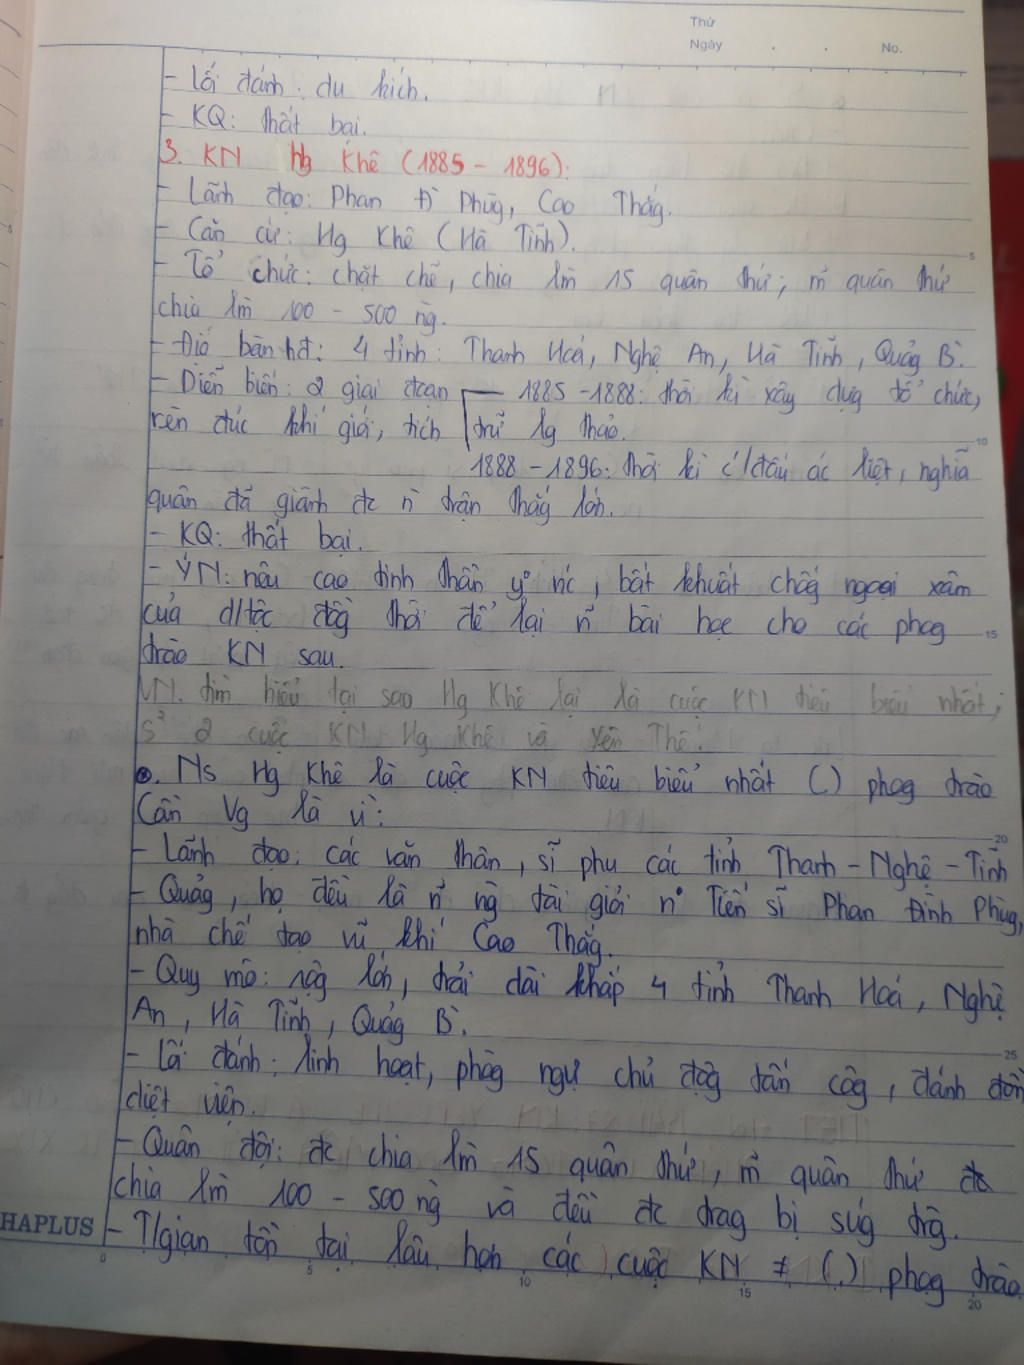 Thứ
Ngày . . No.
- Lối đánh: du kích.
- KQ: thất bại.
3. KN Hg Khê (1885 - 1896):
- Lãnh đạo: Phan Đ Phùg, Cao Thắg.
- Căn cứ: Hg Khê (Hà Tĩnh).
- Tổ chức: chặt chẽ, chia lm 15 quân thứ; m quân thứ
chia lm 100 - 500 ng.
- Địa bàn hđ: 4 tỉnh: Thanh Hoá, Nghệ An, Hà Tĩnh, Quảg B.
- Diễn biến: 2 giai đoạn 1885 - 1888: thời kì xây dựg tổ chức,
rèn đúc khí giới, tích trữ lg thảo.
1888 - 1896: thời kì c/đấu ác liệt, nghĩa
quân đã giành đc n trận thắg lớn.
- KQ: thất bại.
- YN: nêu cao tinh thần y° nc, bất khuất chốg ngoại xâm
của d/tộc đồg thời để lại n bài học cho các phog
trào KN sau.
VN. tìm hiểu tại sao Hg Khê lại là cuộc KN tiêu biểu nhất;
S² 2 cuộc KN Hg Khê và Yên Thế.
. Ns Hg Khê là cuộc KN tiêu biểu nhất (.) phog trào
Cần Vg là vì:
- Lãnh đạo: các văn thân, sĩ phu các tỉnh Thanh - Nghệ - Tĩnh
- Quảg, họ đều là n ng tài giỏi n° Tiến sĩ Phan Đình Phùg,
nhà chế tạo vũ khí Cao Thắg.
- Quy mô: rộg lớn, trải dài khắp 4 tỉnh Thanh Hoá, Nghệ
An, Hà Tĩnh, Quảg B.
- Lối đánh: linh hoạt, phòg ngự chủ độg tấn côg, đánh đồn
diệt viện.
- Quân đội: đc chia lm 15 quân thứ, m quân thứ đc
chia lm 100 - 500 ng và đều đc trag bị súg trg.
HAPLUS - T/gian tồn tại lâu hơn các cuộc KN ≠ (.) phog trào